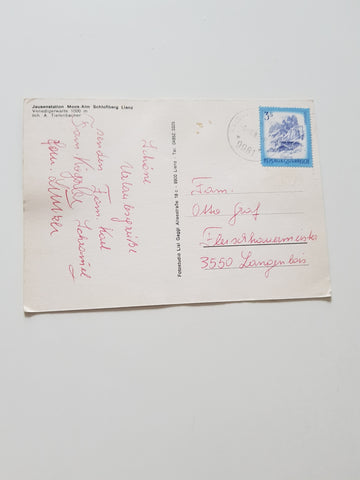 Jausenstation Moos-Alm Schloßberg Lienz
Venedigerwarte 1000 m
Inh. A. Tiefenbacher
Schöne
Urlaubsgrüße
senden Fam. Karl
Fam.
Fotostudio Lisl Gaggl Alleestraße 19 c - 9900 Lienz Tel.
3 S
REPUBLIK ÖSTERREICH
Fam.
Otto Graf
Fleischhauermeister
3550 Langenlois